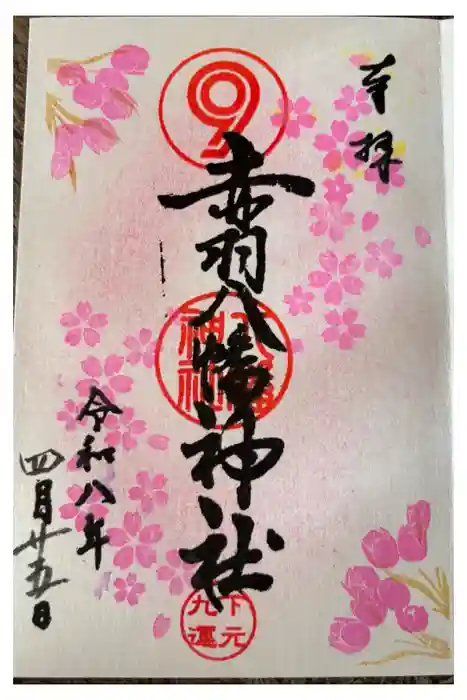 奉拝
赤羽八幡神社
八幡神社
下元九運
令和八年
四月廿五日